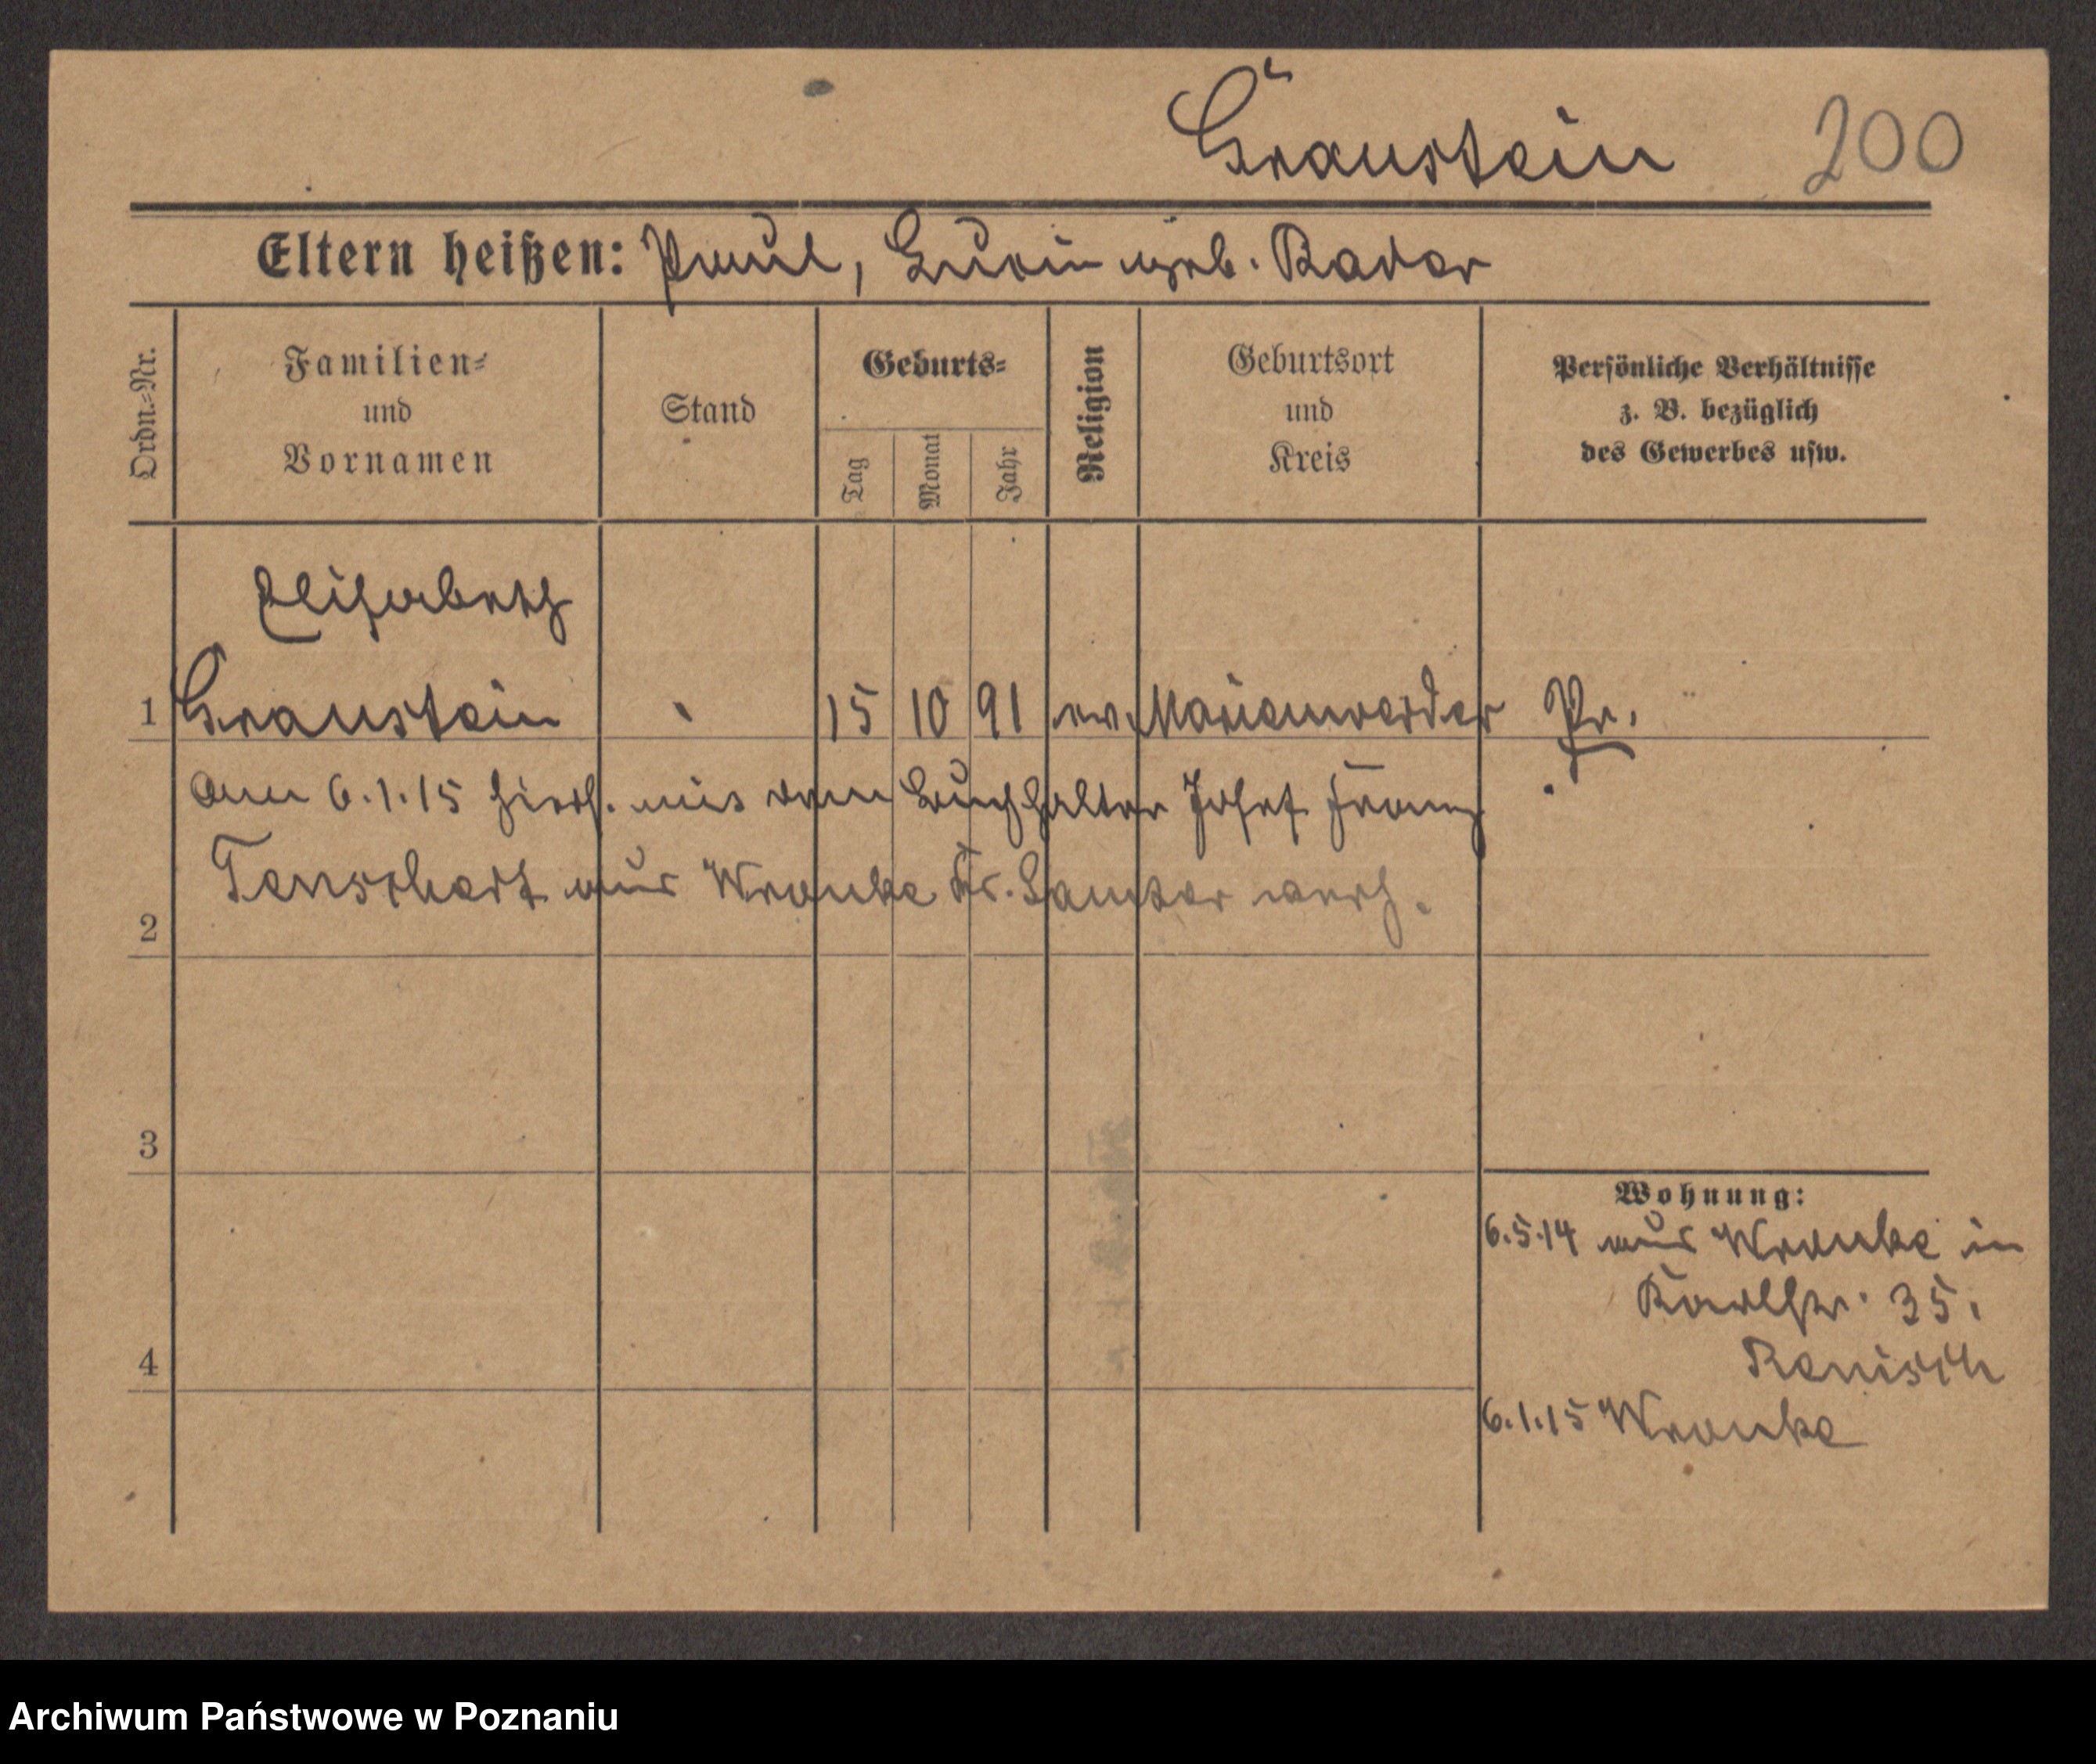 Graustein 200
Eltern heißen: Paul, Lucie geb. Rader
Ordn.-Nr.
Familien-
und
Vornamen
Stand
Geburts-
Tag
Monat
Jahr
Religion
Geburtsort
und
Kreis
Persönliche Verhältnisse
z. B. bezüglich
des Gewerbes usw.
Elisabeth
1 Graustein 15 10 91 ev. Marienwerder Pr.
am 6.1.15 hierh. mit dem Buchhalter Josef Franz
2 aus Wronke Kr. Samter verh.
3
Wohnung:
6.5.14 aus Wronke in
35.
4
6.1.15 Wronke
Archiwum Państwowe w Poznaniu